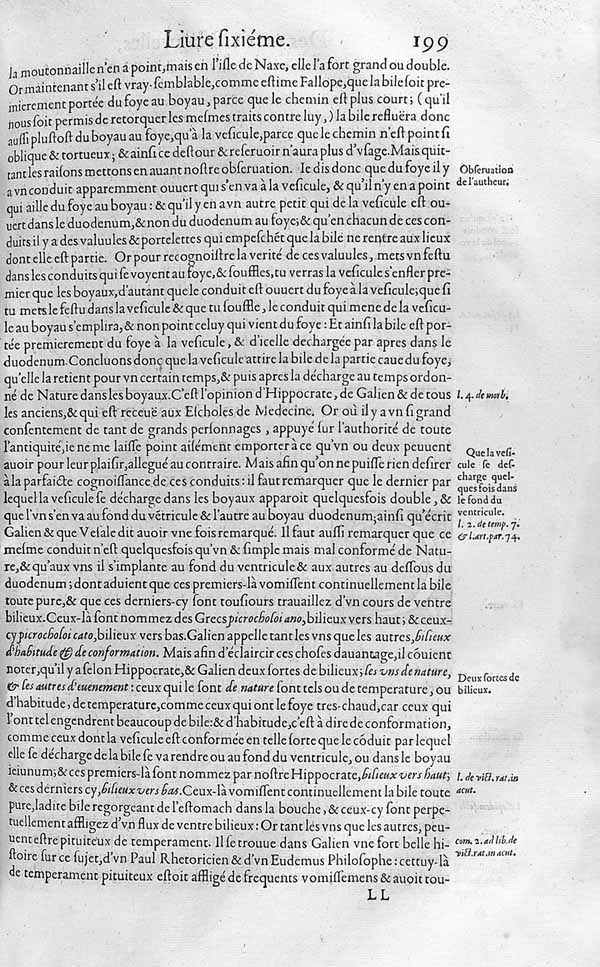 Liure ſixiéme. 199
la moutonnaille n'en a point, mais en l'iſle de Naxe, elle l'a fort grand ou double.
Or maintenant s'il eſt vray-ſemblable, comme eſtime Fallope, que la bile ſoit pre-
mierement portée du foye au boyau, parce que le chemin eſt plus court; (qu'il
nous ſoit permis de retorquer les meſmes traits contre luy,) la bile refluëra donc
auſſi pluſtoſt du boyau au foye, qu'à la veſicule, parce que le chemin n'eſt point ſi
oblique & tortueux; & ainſi ce deſtour & reſeruoir n'aura plus d'vſage. Mais quit-
tant les raiſons mettons en auant noſtre obſeruation. Ie dis donc que du foye il y
a vn conduit apparemment ouuert qui s'en va à la veſicule, & qu'il n'y en a point
qui aille du foye au boyau: & qu'il y en a vn autre petit qui de la veſicule eſt ou-
uert dans le duodenum, & non du duodenum au foye; & qu'en chacun de ces con-
duits il y a des valuules & portelettes qui empeſchēt que la bile ne rentre aux lieux
dont elle eſt partie. Or pour recognoiſtre la verité de ces valuules, mets vn feſtu
dans les conduits qui ſe voyent au foye, & ſouffles, tu verras la veſicule s'enfler pre-
mier que les boyaux, d'autant que le conduit eſt ouuert du foye à la veſicule; que ſi
tu mets le feſtu dans la veſicule & que tu ſouffle, le conduit qui mene de la veſicu-
le au boyau s'emplira, & non point celuy qui vient du foye: Et ainſi la bile eſt por-
tée premierement du foye à la veſicule, & d'icelle dechargée par apres dans le
duodenum. Concluons donc que la veſicule attire la bile de la partie caue du foye,
qu'elle la retient pour vn certain temps, & puis apres la décharge au temps ordon-
né de Nature dans les boyaux. C'eſt l'opinion d'Hippocrate, de Galien & de tous
les anciens, & qui eſt receuë aux Eſcholes de Medecine. Or où il y a vn ſi grand
conſentement de tant de grands perſonnages, appuyé ſur l'authorité de toute
l'antiquité, ie ne me laiſſe point aiſément emporter à ce qu'vn ou deux peuuent
auoir pour leur plaiſir, allegué au contraire. Mais afin qu'on ne puiſſe rien deſirer
à la parfaicte cognoiſſance de ces conduits: il faut remarquer que le dernier par
lequel la veſicule ſe décharge dans les boyaux apparoit quelquesfois double, &
que l'vn s'en va au fond du vētricule & l'autre au boyau duodenum; ainſi qu'écrit
Galien & que Veſale dit auoir vne fois remarqué. Il faut auſſi remarquer que ce
meſme conduit n'eſt quelquesfois qu'vn & ſimple mais mal conformé de Natu-
re, & qu'aux vns il s'implante au fond du ventricule & aux autres au deſſous du
duodenum; dont aduient que ces premiers-là vomiſſent continuellement la bile
toute pure, & que ces derniers-cy ſont touſiours trauaillez d'vn cours de ventre
bilieux. Ceux-là ſont nommez des Grecs picrocholoi ano, bilieux vers haut; & ceux-
cy picrocholoi cato, bilieux vers bas. Galien appelle tant les vns que les autres, bilieux
d'habitude & de conformation. Mais afin d'éclaircir ces choſes dauantage, il cōuient
noter, qu'il y a ſelon Hippocrate, & Galien deux ſortes de bilieux; les vns de nature,
& les autres d'euenement: ceux qui le ſont de nature ſont tels ou de temperature, ou
d'habitude, de temperature, comme ceux qui ont le foye tres-chaud, car ceux qui
l'ont tel engendrent beaucoup de bile: & d'habitude, c'eſt à dire de conformation,
comme ceux dont la veſicule eſt conformée en telle ſorte que le cōduit par lequel
elle ſe décharge de la bile ſe va rendre ou au fond du ventricule, ou dans le boyau
ieiunum; & ces premiers-là ſont nommez par noſtre Hippocrate, bilieux vers haut;
& ces derniers cy, bilieux vers bas. Ceux-là vomiſſent continuellement la bile toute
pure, ladite bile regorgeant de l'eſtomach dans la bouche, & ceux-cy ſont perpe-
tuellement affligez d'vn flux de ventre bilieux: Or tant les vns que les autres, peu-
uent eſtre pituiteux de temperament. Il ſe trouue dans Galien vne fort belle hi-
ſtoire ſur ce ſujet, d'vn Paul Rhetoricien & d'vn Eudemus Philoſophe: cettuy-là
de temperament pituiteux eſtoit affligé de frequents vomiſſemens & auoit tou-
LL
Obſeruation
de l'autheur.
l. 4. de morb.
Que la veſi-
cule ſe deſ-
charge quel-
ques fois dans
le fond du
ventricule.
l. 2. de temp. 7.
& l. art. par. 74.
Deux ſortes de
bilieux.
l. de vict. rat. in
acut.
com. 2. ad lib. de
vict. rat. in acut.